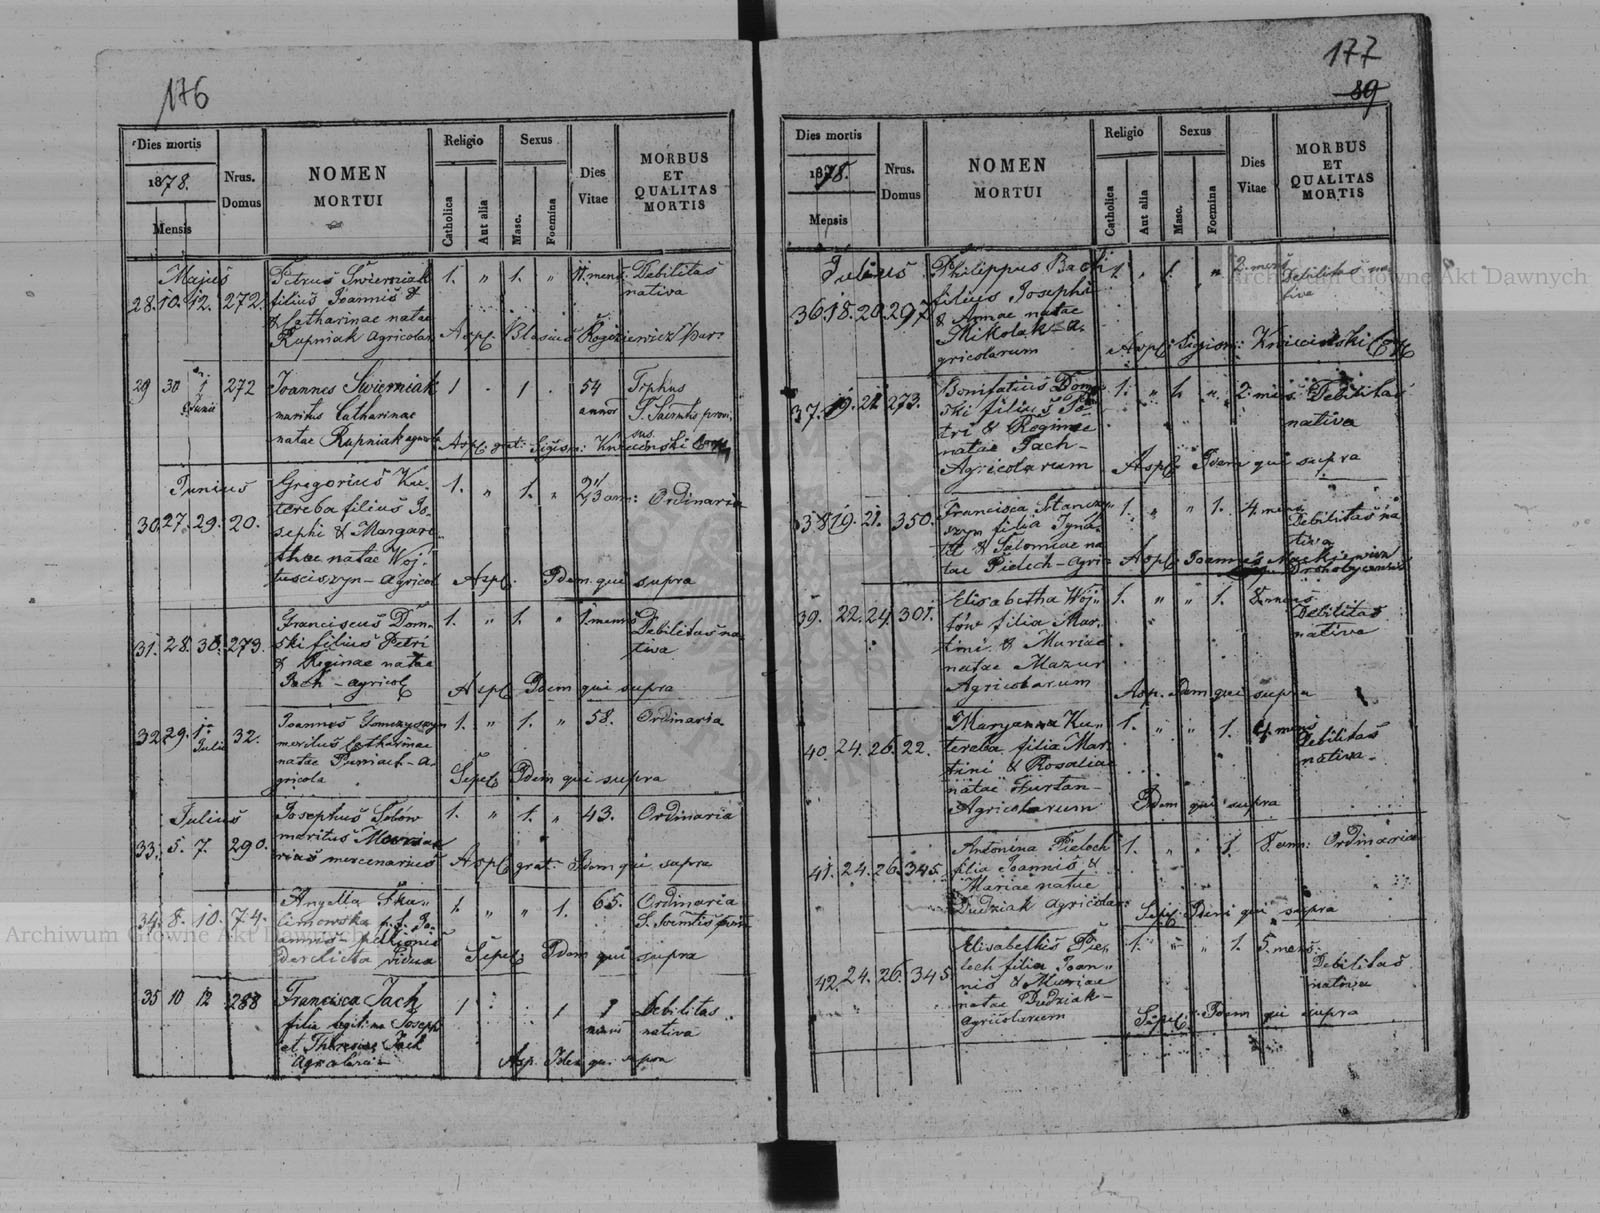 176
Dies mortis
Religio
Sexus
1878.
Nrus.
Domus
NOMEN
MORTUI
Dies
Vitae
MORBUS
ET
QUALITAS
MORTIS
Mensis
Catholica
Aut alia
Masc.
Foemina
Majus
28. 10. 12. 272.
Petrus Świerniak
filius Joannis &
& Catharinae natae
Rupniak agricolar.
1. " 1. "
mens.
Debilitas
nativa
Aspl. Blasius Rogoziewicz par.
29 30 1 272
Junii
Joannes Swierniak
maritus Catharinae
natae Rupniak
1 . 1 .
54
annor
Typhus
Aspl. grat: Sigism: Kniecinski Coop
Junius
30. 27. 29. 20.
Gregorius Ku-
tereba filius Jo-
sephi & Margare-
thae natae Woj-
tusciszyn - agricol
1. " 1. "
Ordinaria
Aspl. Idem qui supra
31. 28. 30. 273.
Franciscus Dom-
ski filius Petri
& Reginae natae
Pach - agricol
1. " 1. "
1. mensis
Debilitas na
tiva
Aspl. Idem qui supra
32. 29. 1. 32.
Julii
Joannes Tomczyszyn
maritus Catharinae
natae
A-
gricola
1. " 1. "
58.
Ordinaria
Sepel Idem qui supra
Julius
33. 5. 7. 290.
Josephus Sobów
maritus
mercenarius
1. " 1. "
43.
Ordinaria
Aspl grat: Idem qui supra
34. 8. 10. 74.
Angella
p. f. Jo-
annis
derelicta vidua
1. " " 1.
65.
Ordinaria
Sepel: Idem qui supra
35 10 12 288
Francisca Jach
filia legitima Joseph
et Theresiae Jach
Agricolarum
1 . . 1
1
mensis
Debilitas
nativa
Asp. Idem qui supra
177
89
Dies mortis
Religio
Sexus
1878.
Nrus.
Domus
NOMEN
MORTUI
Dies
Vitae
MORBUS
ET
QUALITAS
MORTIS
Mensis
Catholica
Aut alia
Masc.
Foemina
Julius
36 18. 20 297
Philippus Bach
filius Josephi
& Annae natae
Mikolak - a-
gricolarum
1. " 1. "
2. mens
Debilitas na
tiva
Aspl: Sigism: Kniecinski Coop
37. 19. 21. 273.
Bonifatius Dom-
ski filius Pe-
tri & Reginae
natae Pach -
Agricolarum
1. " 1. "
2. mens
Debilitas
nativa
Aspl: Idem qui supra
38 19. 21. 350.
Francisca Stanczy-
szyn filia Igna-
tii & Salomiae na
tae Pielech - agri-
1. " " 1.
4. mens
Debilitas na
tiva
Aspl Joannes Mackiewicz
39. 22. 24. 301.
Elisabetha Woj-
tow filia Mar-
tini & Mariae
natae Mazur
Agricolarum
1. " " 1.
mens
Debilitas
nativa
Asp. Idem qui supra
40. 24. 26. 22.
Maryanna Ku-
tereba filia Mar-
tini & Rosaliae
natae Furtan -
Agricolarum
1. " " 1.
mens
Debilitas
nativa
Idem qui supra
41. 24. 26. 345.
Antonina Pielech
filia Joannis &
Mariae natae
Dudziak agricolar:
1. " " 1.
8 ann:
Ordinaria
Sepel Idem qui supra
42. 24. 26. 345
Elisabethis Pie-
lech filia Joan-
nis & Mariae
natae Dudziak -
agricolarum
1. " " 1.
5. mens
Debilitas
nativa
Sepel: Idem qui supra
Archiwum Główne Akt Dawnych
Archiwum Główne Akt Dawnych